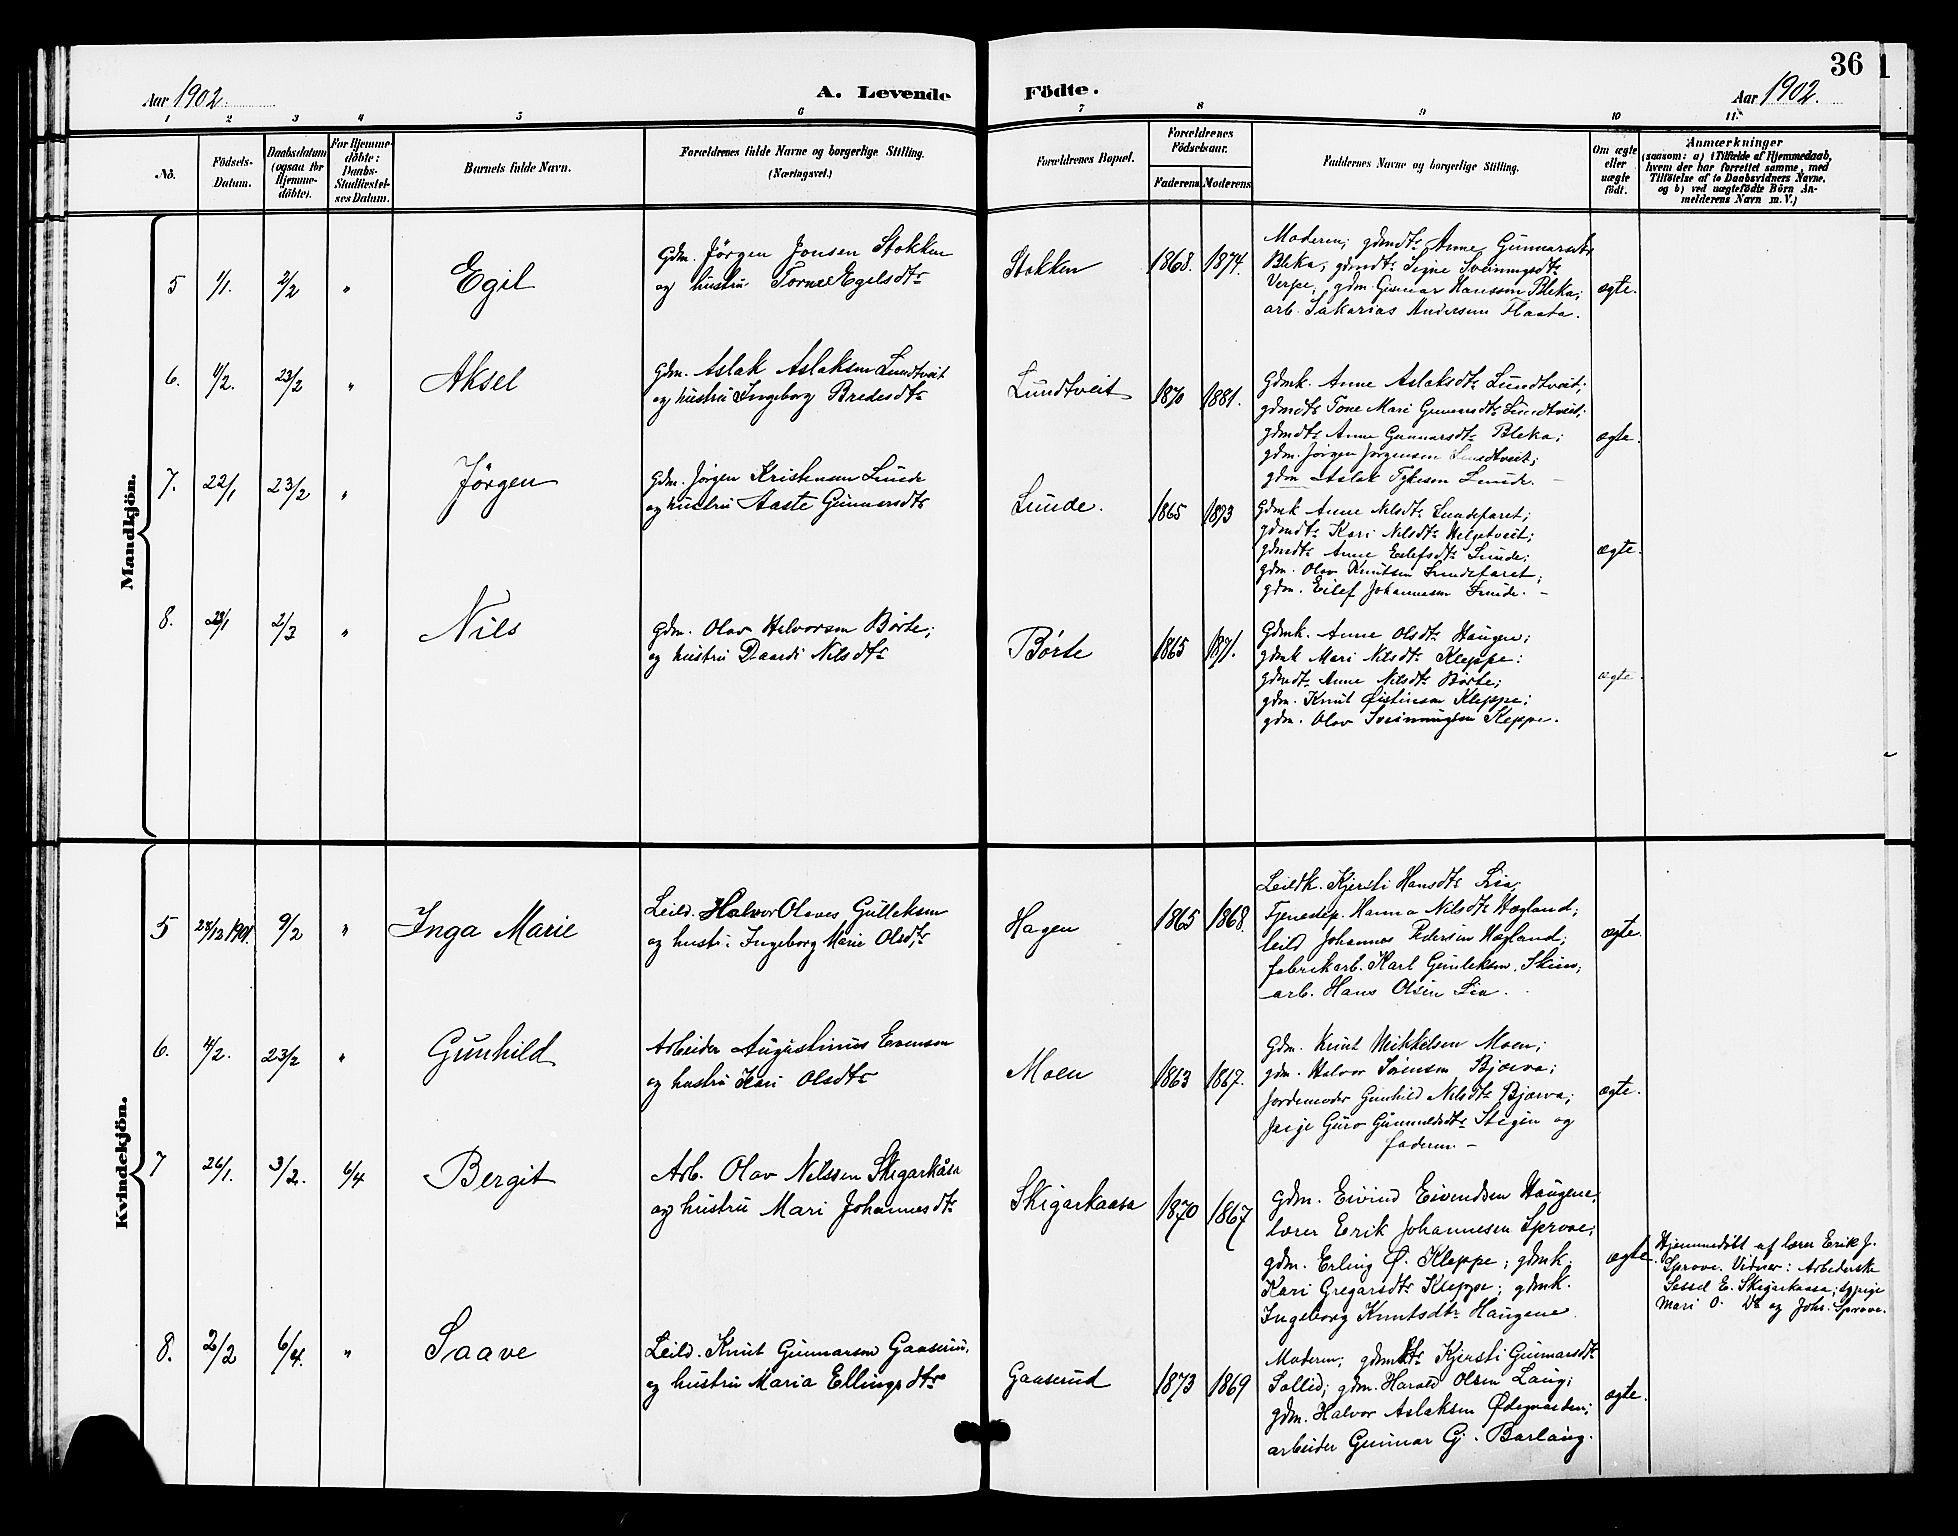 36
Aar 1902.
A. Levende
Födte.
Aar 1902.
1 2 3 4 5 6 7 8 9 10 11.
No.
Födsels-
Datum.
Daabsdatum
(ogsaa for
Hjemme-
döbte).
For Hjemme-
döbte:
Daabs-
Stadfæstel-
ses Datum.
Barnets fulde Navn.
Forældrenes fulde Navne og borgerlige Stilling.
(Næringsvei.)
Forældrenes Bopæl.
Forældrenes
Födselsaar.
Faderens
Moderens
Faddernes Navne og borgerlige Stilling.
Om ægte
eller
uægte
født.
Anmærkninger
(saasom: a) i Tilfælde af Hjemmedaab,
hvem der har forrettet samme, med
Tilföielse af to Daabsvidners Navne,
og b) ved uægtefödte Börn An-
melderens Navn m. V.)
Mandkjön.
5 1/1. 2/2 " Egil
Gdm. Jörgen Jonsen Stokken
og hustru Torne Egilsdtr
Stokken 1868. 1874.
Moderen; gdmdtr Anne Gunnarsdtr
Bleka; gdmdtr Signe Sveinungsdtr
Verpe; gdm. Gunnar Hansson Bleka;
arb. Sakarias Andersen Flaata.
ægte.
6. 1/2. 23/2 " Aksel
Gdm. Aslak Aslaksen Lundtveit
og hustru Ingeborg Bredesdtr
Lundtveit 1870 1881.
Gdmk. Anne Aslaksdtr Lundtveit;
gdmdtr Tone Mari Gunnarsdtr Lundtveit;
gdmdtr Anne Gunnarsdtr Bleka;
gdm. Jörgen Jörgensen Lundtveit;
gdm Aslak Tykesen Lunde. –
ægte.
7. 22/1 23/2 " Jörgen
Gdm. Jörgen Kristensen Lunde
og hustru Aaste Gunnarsdtr
Lunde. 1865 1873
Gdmk Anne Nilsdtr Lundefaret;
gdmdtr Kari Nilsdtr Helgetveit;
gdmdtr Anne Eilefsdtr Lunde;
gdm. Olav Knutsen Lundefaret;
gdm. Eilef Johannesen Lunde. –
ægte.
8. 23/1 2/3 " Nils
Gdm. Olav Halvorsen Börte;
og hustru Daardi Nilsdtr
Börte 1865 1871.
Gdmk. Anne Olsdtr Haugen;
gdmk Mari Nilsdtr Kleppe:
gdmdtr Anne Nilsdtr Börte;
gdm. Knut Øistinsen Kleppe;
gdm. Olav Sveinungsen Kleppe.
ægte.
Kvindekjön.
5 28/12 1901. 9/2 " Inga Marie
Leild. Halvor Olaves Gulleksen
og hustr. Ingeborg Marie Olsdtr
Hagen 1865 1868.
Leildk. Kjersti Hansdtr Lia;
Tjenestep. Hanna Nilsdtr Hægland;
leild Johannes Pedersen Hægland;
fabrikarb. Karl Gunleksen, Skien;
arb. Hans Olsen Lia.
ægte.
6. 4/2. 23/2 " Gunhild
Arbeider Augustinus Evensen
og hustru Kari Olsdtr
Moen 1863 1867.
Gdm. Knut Mikkelsen Moen;
gdm. Halvor Sörensen Bjærva;
Jordemoder Gunhild Nilsdtr Bjærva;
pige Guro Gunnulsdtr Stigen og
faderen. –
ægte.
7 26/1. 3/2. 6/4 Bergit
Arb. Olav Nilssen Skigarkåsa
og hustru Mari Johannesdtr
Skigarkaasa 1870 1867
Gdm. Eivind Eivendsen Haugene,
lærer Erik Johannesen Sprove;
gdm. Erling Ø. Kleppe; gdmk.
Kari Gregarsdtr Kleppe; gdmk.
Ingeborg Knutsdtr Haugene.
ægte.
Hjemmedöbt af lærer Erik J.
Sprove. Vidner: Arbederske
Sessel E. Skigarkaasa; sypige
Mari O. Ds og Johs. Sprove.
8. 2/2 6/4. " Saave
Leild. Knut Gunnarsen Gaaserud,
og hustru Maria Ellingsdtr
Gaaserud 1873 1869
Moderen; gdmdtr Kjersti Gunnarsdtr
Sollid; gdm. Harald Olsen Laug;
gdm. Halvor Aslaksen Ödegaarden;
arbeider Gunnar Gj. Barlaug.
ægte.